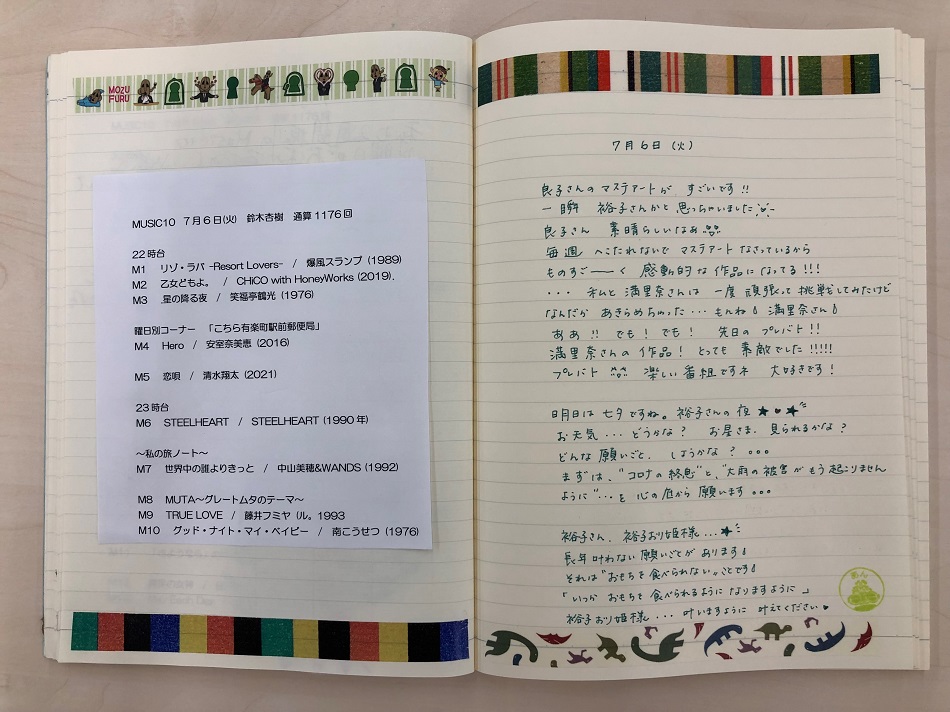 MOZU
FURU
MUSIC10　7月6日(火)　鈴木杏樹　通算1176回
22時台
M1　リゾ・ラバ -Resort Lovers-　/　爆風スランプ (1989)
M2　乙女どもよ。　/　CHiCO with HoneyWorks (2019).
M3　.星の降る夜　/　笑福亭鶴光 (1976)
曜日別コーナー　「こちら有楽町駅前郵便局」
M4　Hero　/　安室奈美恵 (2016)
M5　恋唄　/　清水翔太 (2021)
23時台
M6　STEELHEART　/　STEELHEART (1990年)
～私の旅ノート～
M7　世界中の誰よりきっと　/　中山美穂&WANDS (1992)
M8　MUTA～グレートムタのテーマ～
M9　TRUE LOVE　/　藤井フミヤ (ル。1993
M10　グッド・ナイト・マイ・ベイビー　/　南こうせつ (1976)
7月6日 (火)
良子さんの マステアートが すごいです!!
一瞬 裕子さんかと 思っちゃいました
良子さん 素晴らしいなあ
毎週 へこたれないで マステアート なさっているから
ものすごーく 感動的な 作品に なってる!!!
... 私と 満里奈さんは 一度 頑張って 挑戦してみたけど
なんだか あきらめちゃった... もんね! 満里奈さん!
ああ!! でも! でも! 先日の プレバト!!
満里奈さんの 作品! とっても 素敵でした!!!!!
プレバト 楽しい番組ですネ 大好きです!
明日は 七夕ですね。裕子さんの夜 ★♥★
お天気... どうかな? お星さま、見られるかな?
どんな 願いごと、しようかな? 。。。
まずは、"コロナの終息"と、"大雨の被害が もう起こりません
ように"... を 心の底から 願います。。。
裕子さん、裕子おり姫様...★
長年叶わない 願いごとが あります!
それは"おもちを 食べられない"ことです!
「いつか おもちを 食べられるように なりますように」
裕子おり姫様... 叶いますように 叶えてください♥